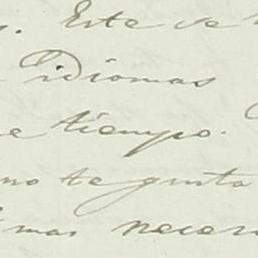 s. Este se
idiomas
e tiempo.
no te gusta
mas neces